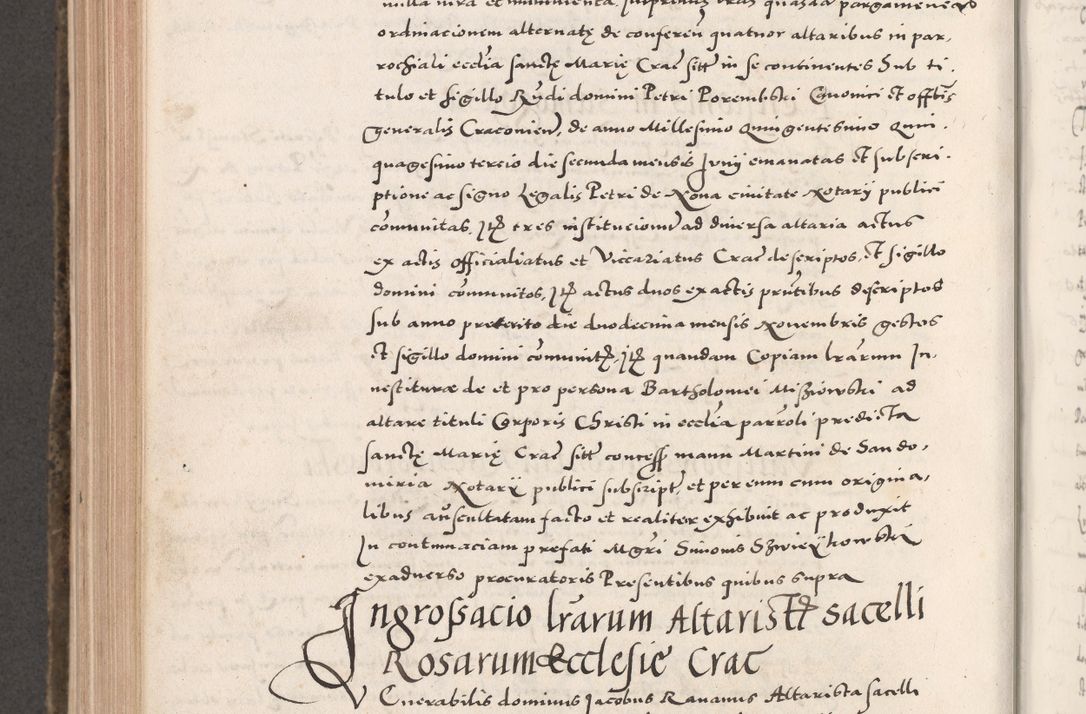 nulla iura et munimenta. Inprimis lras quasdã pargameneas
ordinacionem alternatę de conferen̄ quatuor altaribus in par,
rochiali ecclīa sanctę Marię Crac̄ sitt̄ in se continentes Sub ti,
tulo et sigillo Rn̄di domini Petri Porembski Canonici et offłis
generalis Craconien̄, de anno Millesimo Quingentesimo Quin,
quagesimo tercio die secunda mensis Junij emanatas et subscri,
ptione ac signo Legalis Petri de Noua ciuitate Notarij publici
cōmunitas, Itꝫ tres institucionū ad diuersa altaria actus
ex actis officialiatus et Viccariatus Crac̄ descriptos, et sigillo
domini cōmunitos, Itꝫ actus duos ex actis pn̄tibus descriptos
sub anno preterito die duodecima mensis Nouembris gestos
et sigillo domini cōmunitꝫ, Itꝫ quandam Copiam lrārum In,
nestituræ de et pro persona Bartholomei Miszowski ad
altare tituli Corporis Christi in ecclīa parroli predicta
sanctę Marię Crac̄ sitt̄ concess̄ manu Martini de Sando,
miria Notarij publici subscript̄, et per eum cum origina,
libus auscultatam facto et realiter exhibuit ac produxit
In contumaciam prefati Mgri Simonis Szwieykowski
ex aduerso procuratoris Presentibus quibus supra
Ingrossacio lrārum Altaristꝫ sacelli
Rosarum Ecclesię Crac̄
Venerabilis dominus Jacobus Rauanus Altarista sacelli